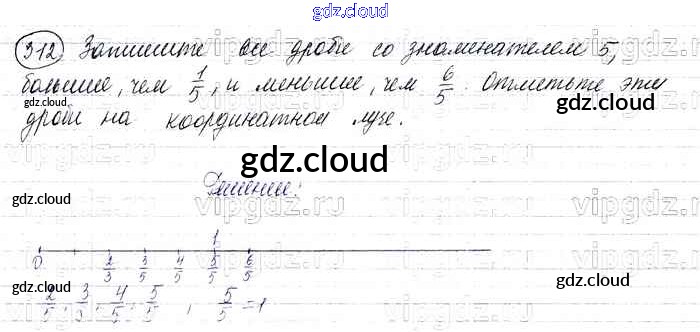 gdz.cloud
312 Запишите все дроби со знаменателем 5,
большие, чем 1/5, и меньшие, чем 6/5. Отметьте эти
gdz.cloud gdz.cloud
дроби на координатном луче.
gdz.cloud
gdz.cloud
Решение:
vipgdz.ru vipgdz.ru
1
0 2/3 3/5 4/5 5/5 6/5
gdz.cloud gdz.cloud
2/5, 3/5, 4/5, 5/5, 5/5 = 1
gdz.cloud